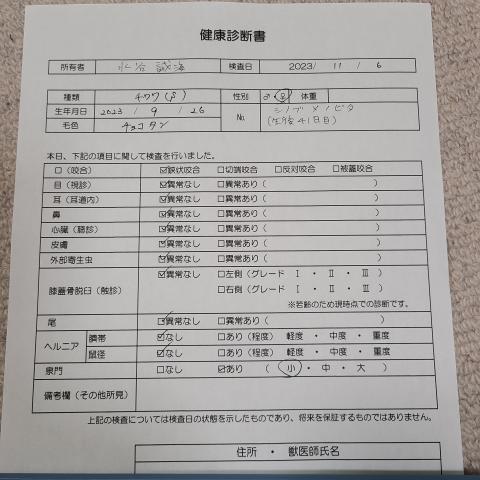 健康診断書
所有者 水谷 誠海 検査日 2023/ 11 / 6
種類 チワワ(β) 性別 ♂・♀ 体重
生年月日 2023 / 9 / 26 No. シノブ×ノビタ
毛色 チョコタン (生後41日目)
本日、下記の項目に関して検査を行いました。
口(咬合) ☑鋏状咬合 □切端咬合 □反対咬合 □被蓋咬合
目(視診) ☑異常なし □異常あり( )
耳(耳道内) ☑異常なし □異常あり( )
鼻 ☑異常なし □異常あり( )
心臓(聴診) ☑異常なし □異常あり( )
皮膚 ☑異常なし □異常あり( )
外部寄生虫 ☑異常なし □異常あり( )
膝蓋骨脱臼(触診) ☑異常なし □左側(グレード Ⅰ ・ Ⅱ ・ Ⅲ )
□右側(グレード Ⅰ ・ Ⅱ ・ Ⅲ )
※若齢のため現時点での診断です。
尾 ☑異常なし □異常あり( )
ヘルニア 臍帯 ☑なし □あり(程度) 軽度 ・ 中度 ・ 重度
鼠径 ☑なし □あり(程度) 軽度 ・ 中度 ・ 重度
泉門 □なし ☑あり ( 小 ・ 中 ・ 大 )
備考欄(その他所見)
上記の検査については検査日の状態を示したものであり、将来を保証するものではありません。
住所 ・ 獣医師氏名